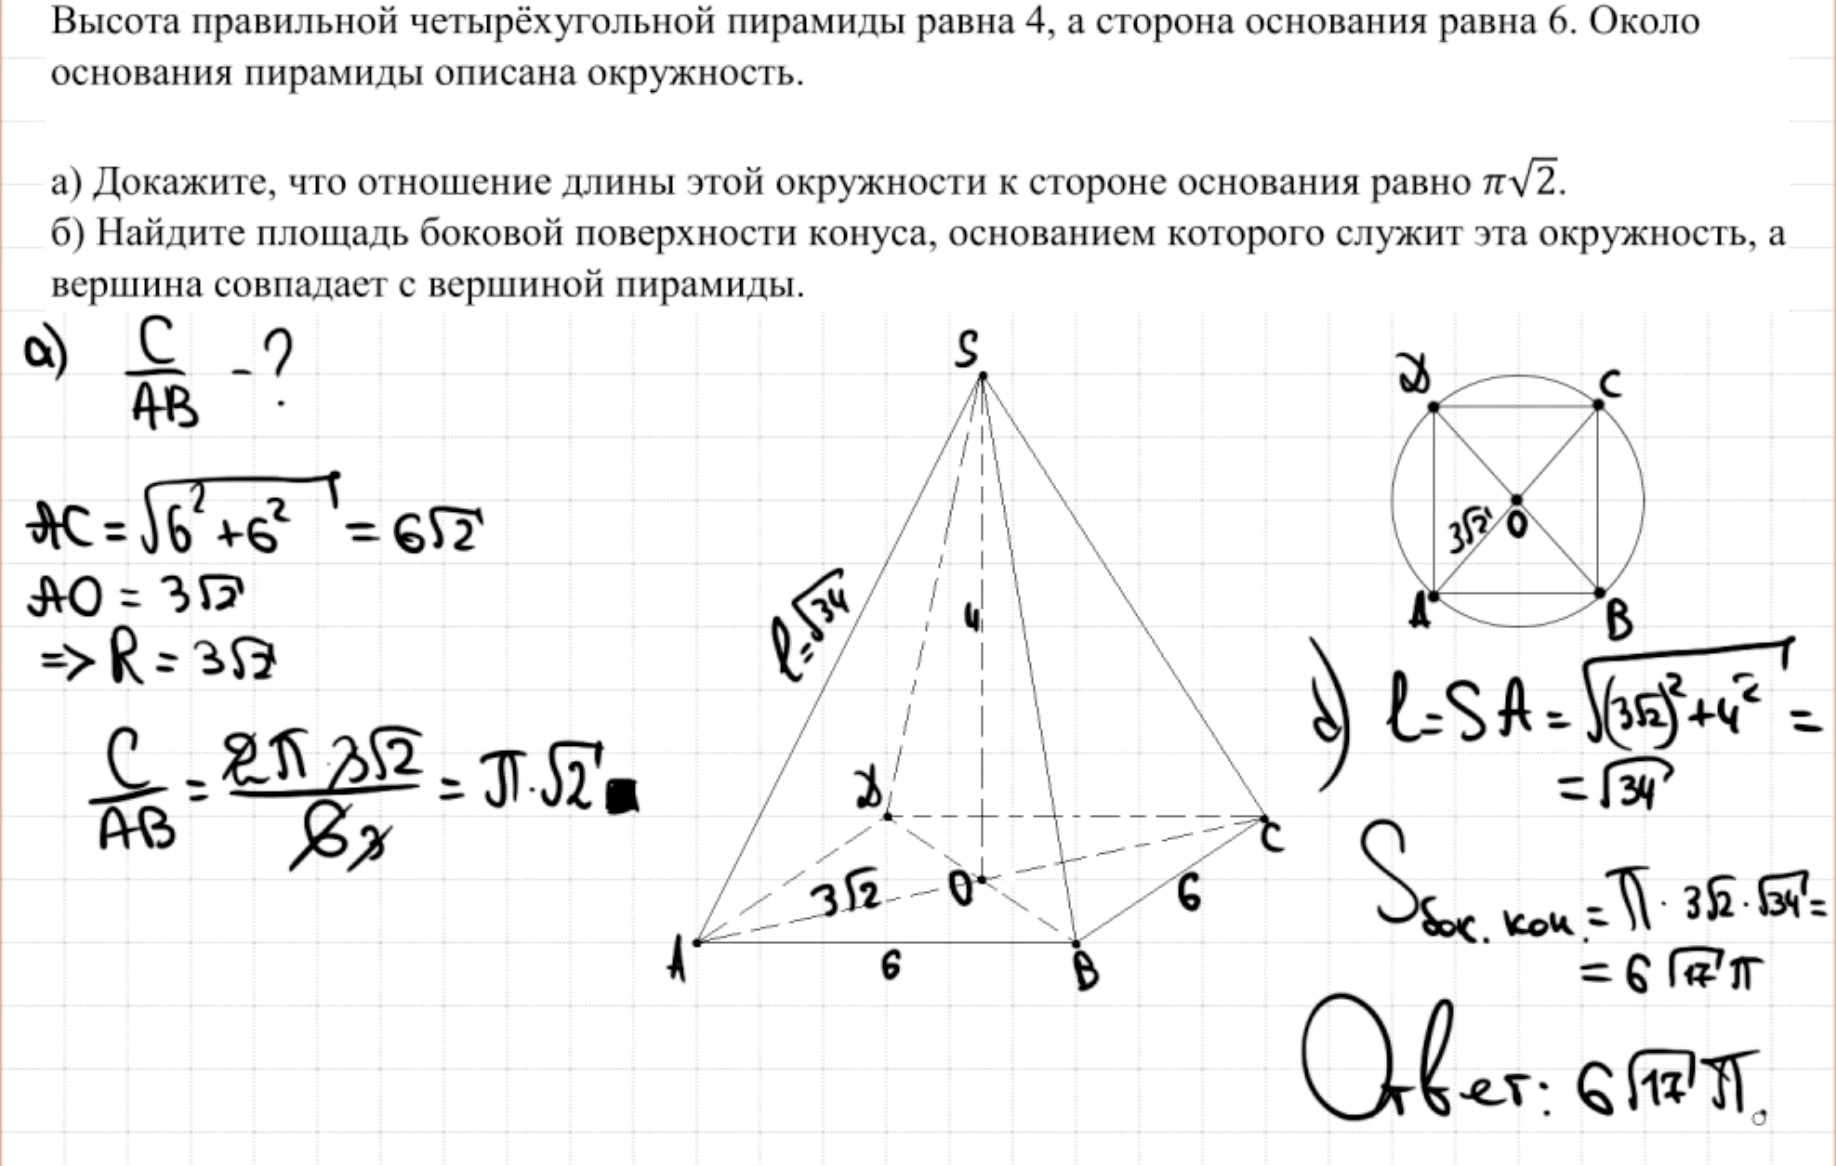 Высота правильной четырёхугольной пирамиды равна 4, а сторона основания равна 6. Около
основания пирамиды описана окружность.
а) Докажите, что отношение длины этой окружности к стороне основания равно π√2.
б) Найдите площадь боковой поверхности конуса, основанием которого служит эта окружность, а
вершина совпадает с вершиной пирамиды.
а) C/AB - ?
AC = √(6² + 6²) = 6√2
AO = 3√2
=> R = 3√2
C/AB = 2π·3√2/6 3 = π·√2 ■
S
l = √34
4
D
C
3√2
O
6
A
6
B
D
C
3√2
O
A
B
б) l = SA = √((3√2)² + 4²) =
= √34
Sбок. кон. = π · 3√2 · √34 =
= 6√17 π
Ответ: 6√17 π.